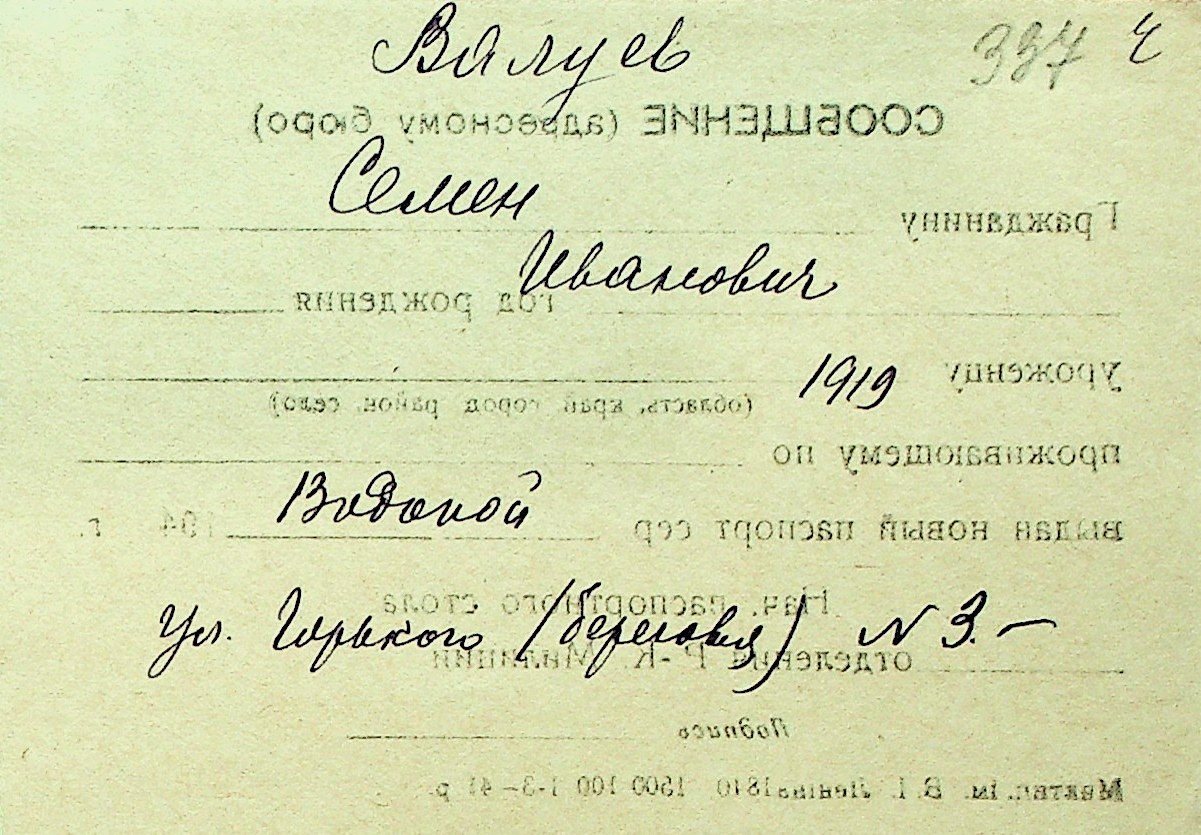 Валуев 337 ч
СООБЩЕНИЕ (адресному бюро)
Семен
Гражданину
Иванович
год рождения
уроженцу 1919
(область, край город район, село)
проживающему по
Водопой
выдан новый паспорт сер 194 г.
Нач. паспортного стола
Ул. Горького (Береговая) N 3.–
отделения Р-К. Милиции
Подпись
В. І. Леніна 1810 1500 100 1-3-41 р.